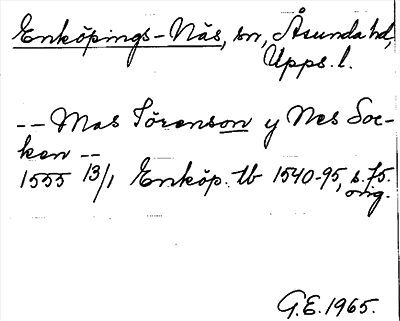 Enköpings-Näs, sn, Åsunda hd,
Upps. l.
-- Mas Törenson y Nes Soc-
ken --
1555 13/1 Enköp. tb 1540-95, s. 75.
orig.
G.E. 1965.